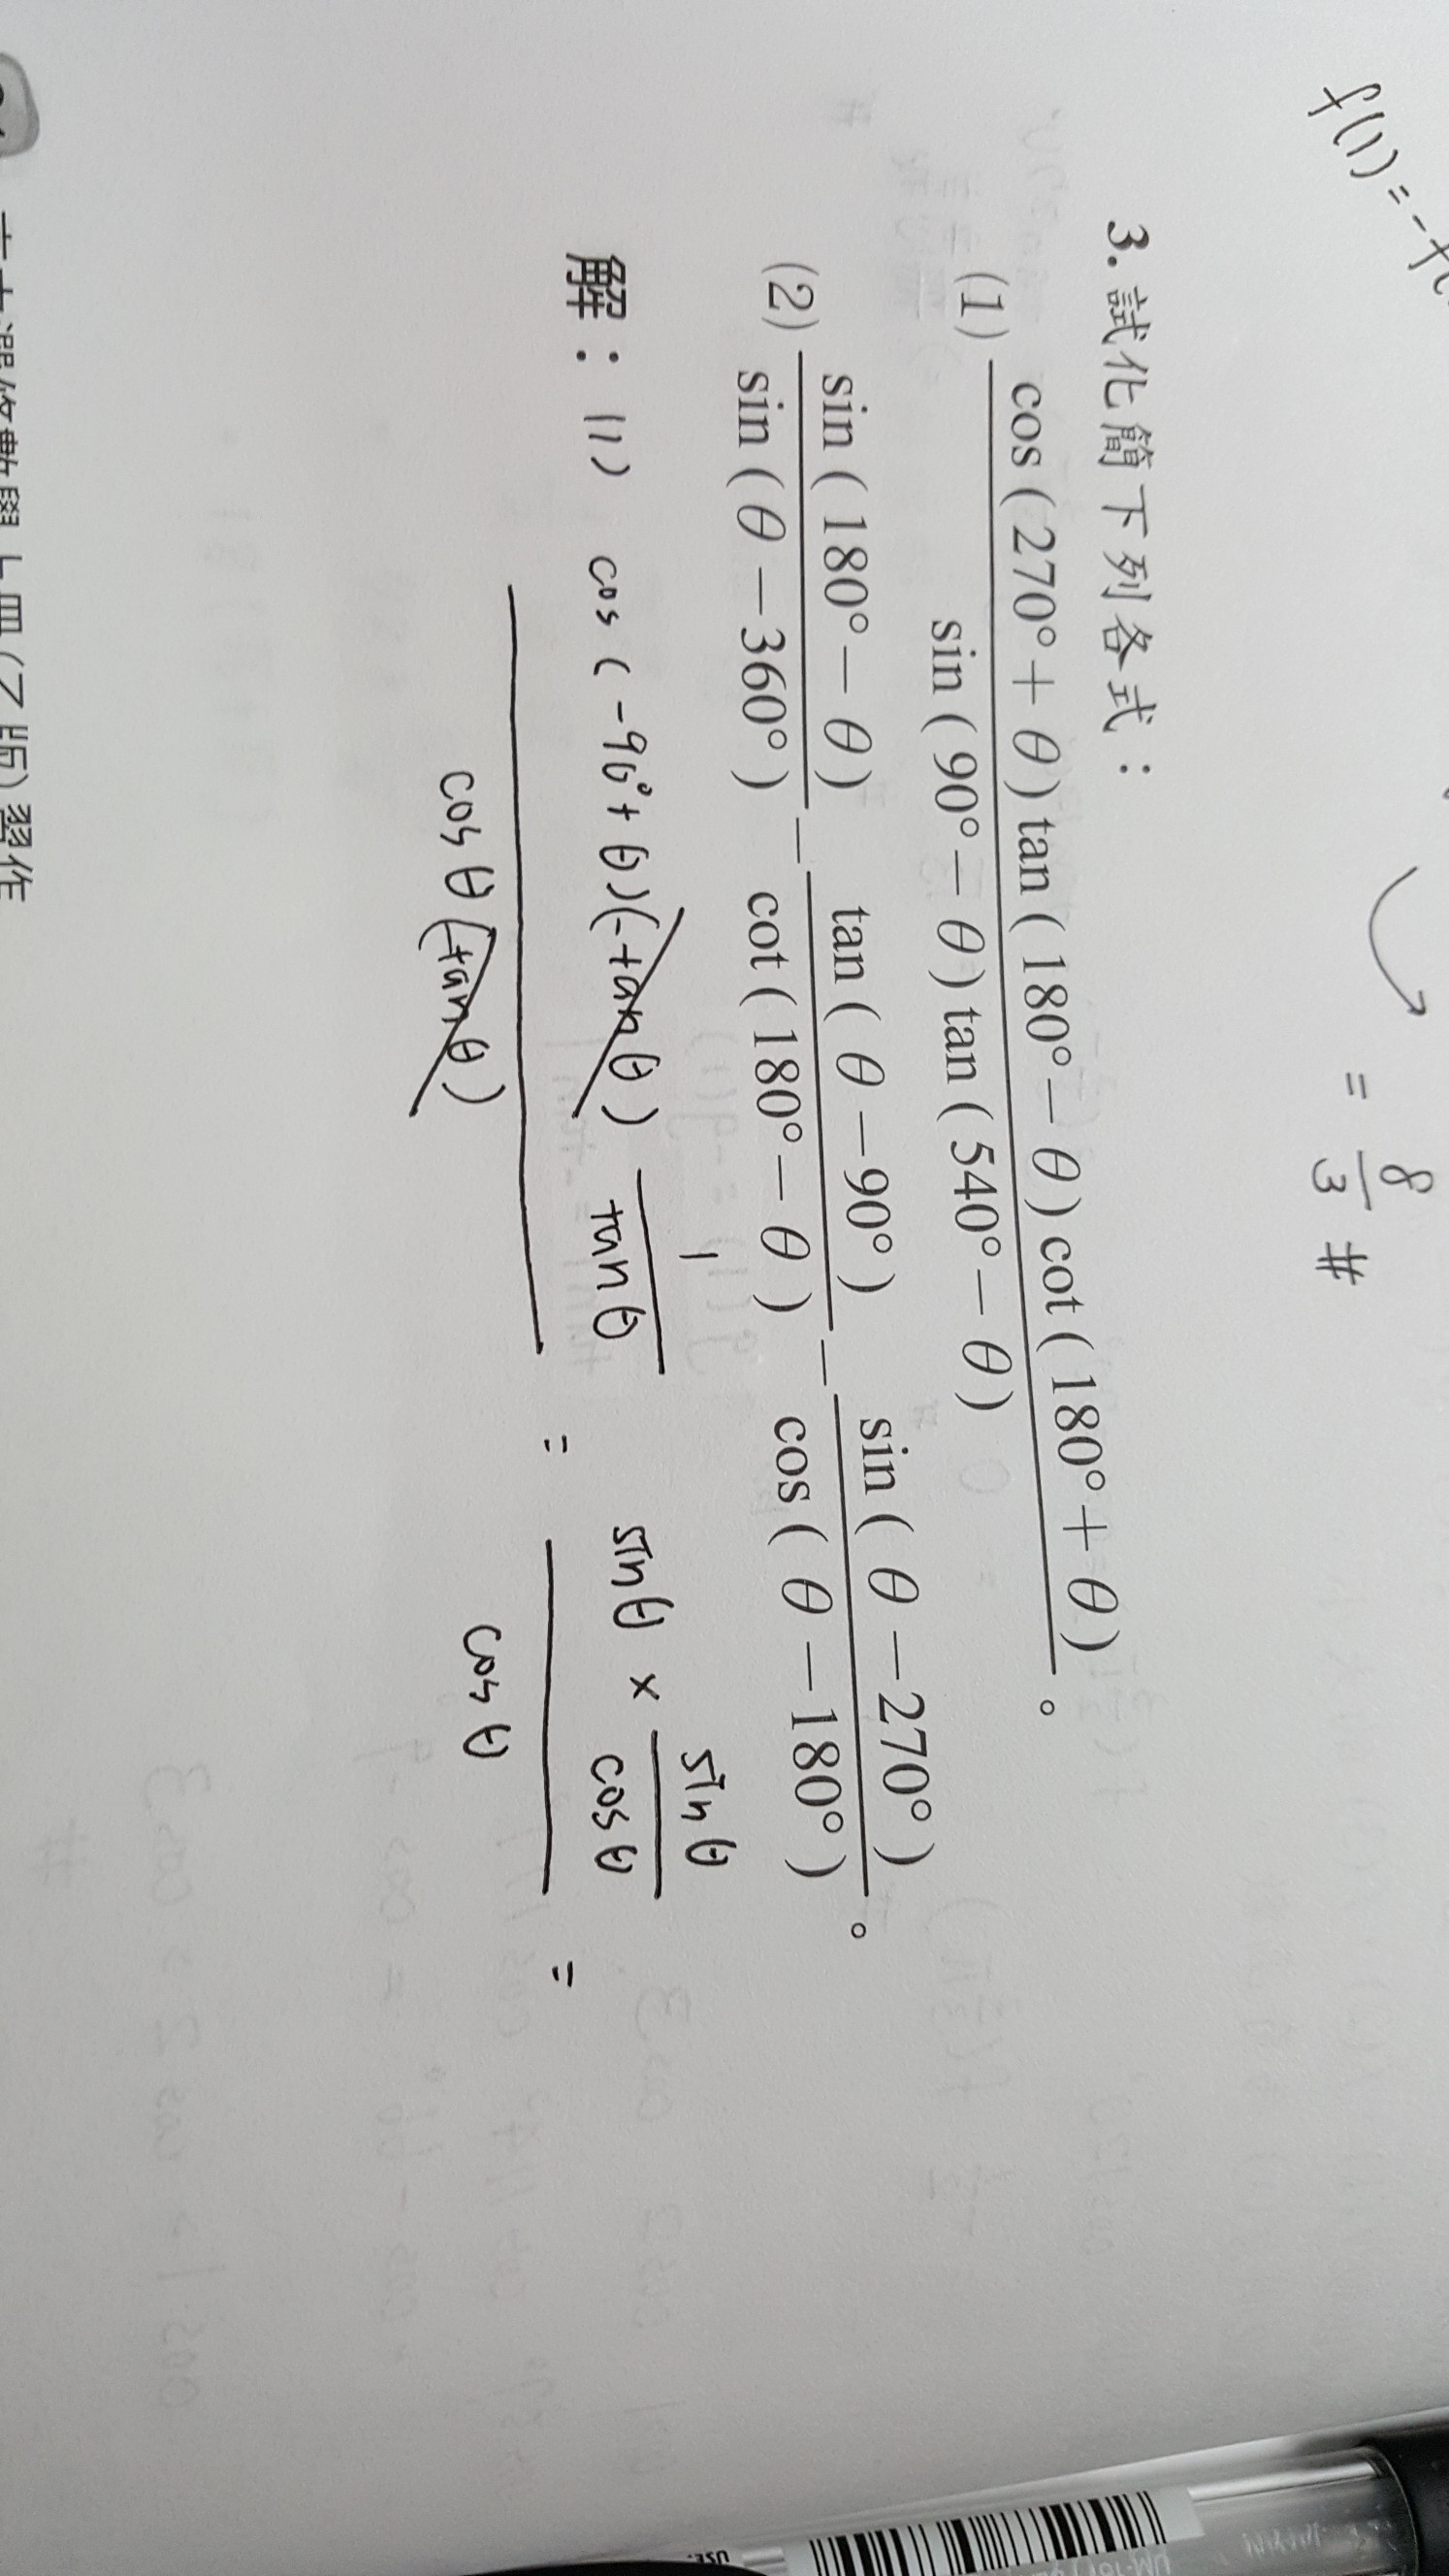 f(1) = -
= 8/3 #
3. 試化簡下列各式：
(1) cos(270°+θ)tan(180°-θ)cot(180°+θ) / sin(90°-θ)tan(540°-θ) 。
(2) sin(180°-θ) / sin(θ-360°) - tan(θ-90°) / cot(180°-θ) - sin(θ-270°) / cos(θ-180°) 。
解：(1) cos(-90°+θ)(-tanθ) 1/tanθ / cosθ(-tanθ) = sinθ × sinθ/cosθ / cosθ =
(乙版)習作